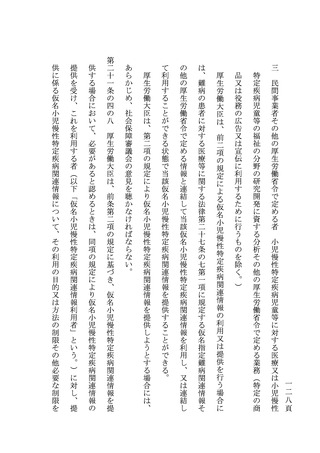 一二八頁
三　民間事業者その他の厚生労働省令で定める者　小児慢性特定疾病児童等に対する医療又は小児慢性
特定疾病児童等の福祉の分野の研究開発に資する分析その他の厚生労働省令で定める業務（特定の商
品又は役務の広告又は宣伝に利用するために行うものを除く。）
厚生労働大臣は、前二項の規定による仮名小児慢性特定疾病関連情報の利用又は提供を行う場合に
は、難病の患者に対する医療等に関する法律第二十七条の七第一項に規定する仮名指定難病関連情報そ
の他の厚生労働省令で定める情報と連結して当該仮名小児慢性特定疾病関連情報を利用し、又は連結し
て利用することができる状態で当該仮名小児慢性特定疾病関連情報を提供することができる。
厚生労働大臣は、第二項の規定により仮名小児慢性特定疾病関連情報を提供しようとする場合には、
あらかじめ、社会保障審議会の意見を聴かなければならない。
第二十一条の四の八　厚生労働大臣は、前条第二項の規定に基づき、仮名小児慢性特定疾病関連情報を提
供する場合において、必要があると認めるときは、同項の規定により仮名小児慢性特定疾病関連情報の
提供を受け、これを利用する者（以下「仮名小児慢性特定疾病関連情報利用者」という。）に対し、提
供に係る仮名小児慢性特定疾病関連情報について、その利用の目的又は方法の制限その他必要な制限を